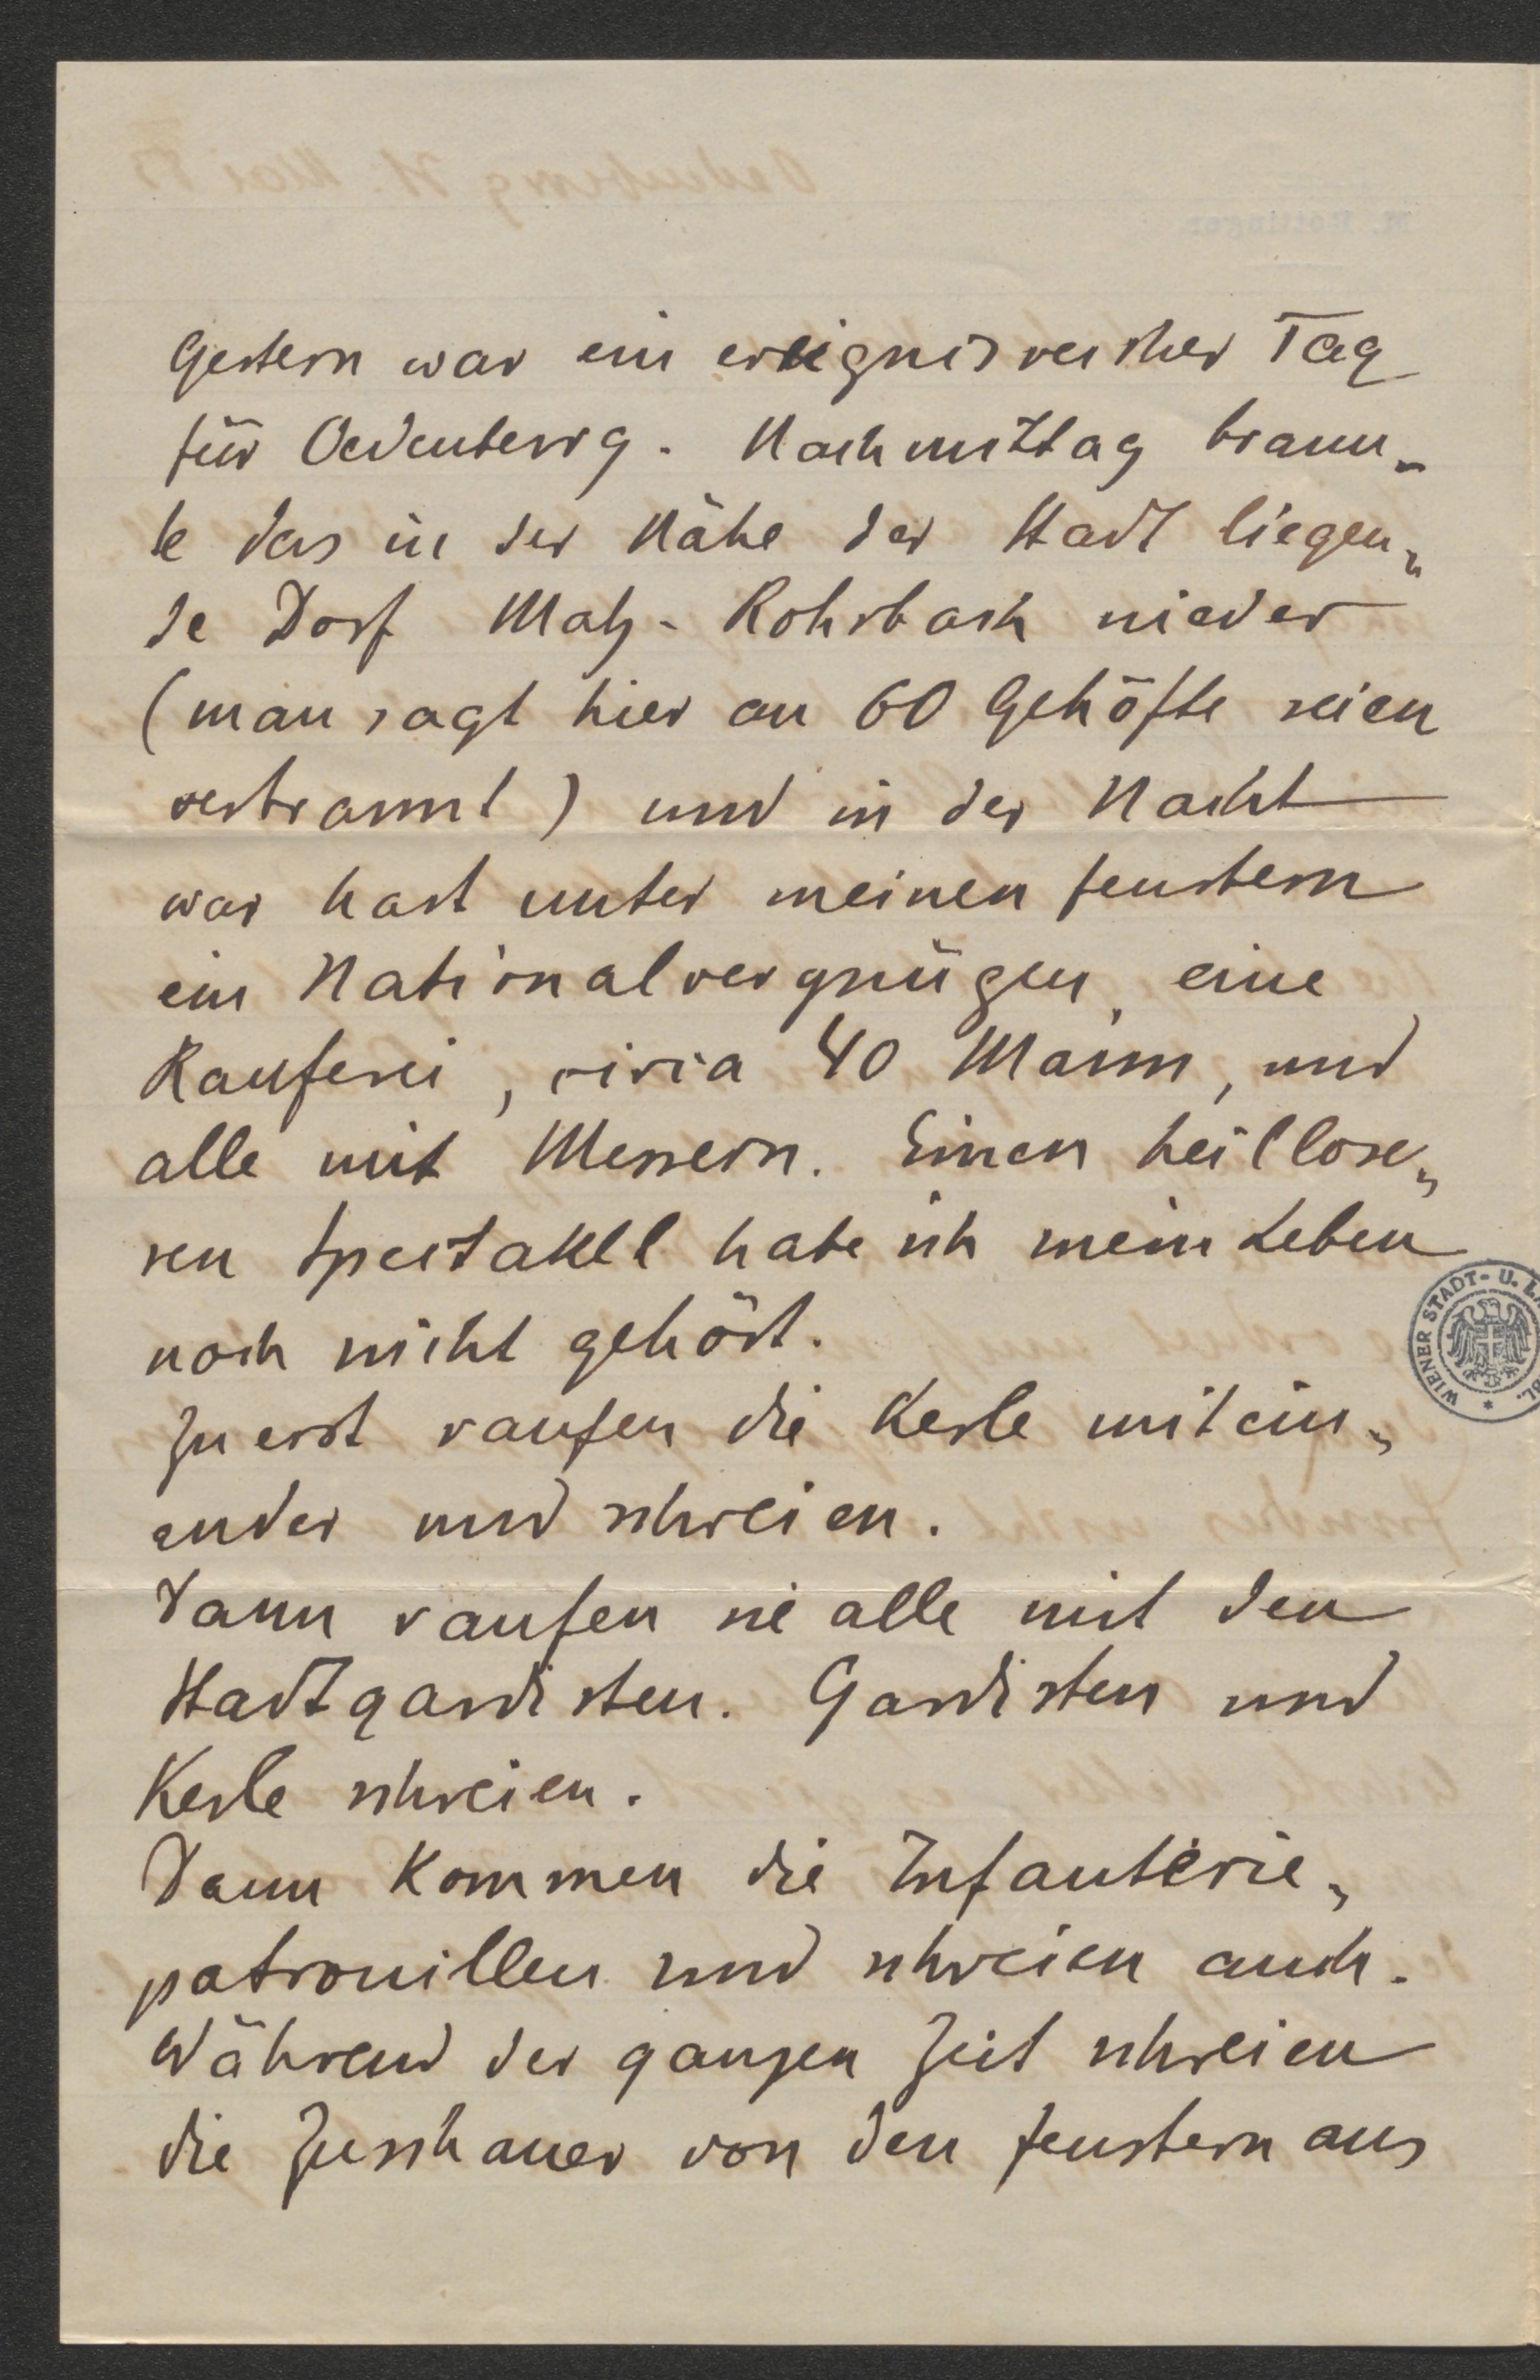 Gestern war ein ereignisreicher Tag
für Oedenburg. Nachmittag brann„
te das in der Nähe der Stadt liegen„
de Dorf Marz-Rohrbach nieder
(man sagt hier an 60 Gehöfte seien
verbrannt) und in der Nacht
war hart unter meinen Fenstern
ein Nationalvergnügen, eine
Rauferei, circa 40 Mann, und
alle mit Messern. Einen heillose„
ren Spectakel habe ich mein Leben
noch nicht gehört.
Zuerst raufen die Kerle mitein„
ander und schreien.
Dann raufen sie alle mit den
Stadtgardisten. Gardisten und
Kerle schreien.
Dann kommen die Infanterie„
patrouillen und schreien auch.
Während der ganzen Zeit schreien
die Zuschauer von den Fenstern aus
WIENER STADT- U.